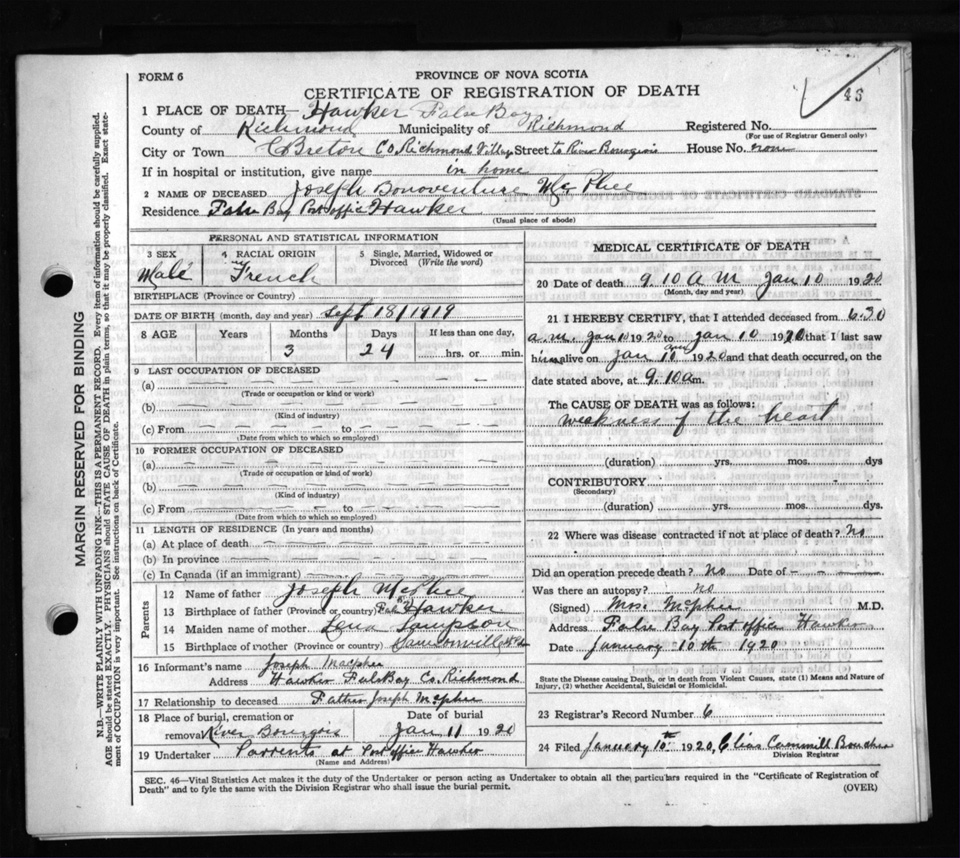 FORM 6
PROVINCE OF NOVA SCOTIA
CERTIFICATE OF REGISTRATION OF DEATH
43
1 PLACE OF DEATH— Hawker False Bay
County of Richmond Municipality of Richmond Registered No.
(For use of Registrar General only)
City or Town C Breton Co, Richmond Village Street to River Bourgeois House No. none
If in hospital or institution, give name in home
2 NAME OF DECEASED Joseph Bonoventure McPhee
Residence False Bay Post office Hawker
(Usual place of abode)
PERSONAL AND STATISTICAL INFORMATION
3 SEX Male
4 RACIAL ORIGIN French
5 Single, Married, Widowed or Divorced (Write the word)
BIRTHPLACE (Province or Country)
DATE OF BIRTH (month, day and year) Sept 18/1919
8 AGE Years Months 3 Days 24 If less than one day, hrs. or min.
9 LAST OCCUPATION OF DECEASED
(a) — — — — — —
(Trade or occupation or kind or work)
(b) — — — — — —
(Kind of industry)
(c) From — — — to — — — —
(Date from which to which so employed)
10 FORMER OCCUPATION OF DECEASED
(a) — — — — — —
(Trade or occupation or kind of work)
(b) — — — — — —
(Kind of industry)
(c) From — — — to — — — —
(Date from which to which so employed)
11 LENGTH OF RESIDENCE (In years and months)
(a) At place of death — — — — —
(b) In province — — — — —
(c) In Canada (if an immigrant) — — — —
Parents
12 Name of father Joseph McPhee
13 Birthplace of father (Province or country) False Bay Hawker
14 Maiden name of mother Lena Sampson
15 Birthplace of mother (Province or country) Samsonville
16 Informant's name Joseph Macphee
Address Hawker FalsBay Co. Richmond
17 Relationship to deceased Father Joseph Mcphee
18 Place of burial, cremation or removal River Bourgois
Date of burial Jan 11 1920
19 Undertaker Parrents at Post office Hawker
(Name and Address)
MEDICAL CERTIFICATE OF DEATH
20 Date of death 9.10 a M Jan 10 1920
(Month, day and year)
21 I HEREBY CERTIFY, that I attended deceased from 6.20
a.m. Jan 10 1920 to Jan 10 1920 that I last saw
him alive on Jan 10 am 1920 and that death occurred, on the
date stated above, at 9.10 a m.
The CAUSE OF DEATH was as follows:
weakness of the heart
(duration) yrs. mos. dys
CONTRIBUTORY
(Secondary)
(duration) yrs. mos. dys.
22 Where was disease contracted if not at place of death? No
Did an operation precede death? No Date of — — —
Was there an autopsy? no
(Signed) Mrs. Mcphee M.D.
Address False Bay Post office Hawker
Date January 10th 1920
State the Disease causing Death, or in death from Violent Causes, state (1) Means and Nature of
Injury, (2) whether Accidental, Suicidal or Homicidal.
23 Registrar's Record Number 6
24 Filed January 10th 1920, Elias Cammill Boucher
Division Registrar
SEC. 46—Vital Statistics Act makes it the duty of the Undertaker or person acting as Undertaker to obtain all the particulars required in the "Certificate of Registration of
Death" and to fyle the same with the Division Registrar who shall issue the burial permit.
(OVER)
MARGIN RESERVED FOR BINDING
N.B.—WRITE PLAINLY WITH UNFADING INK—THIS IS A PERMANENT RECORD. Every item of information should be carefully supplied.
AGE should be stated EXACTLY. PHYSICIANS should STATE CAUSE OF DEATH in plain terms, so that it may be properly classified. Exact state-
ment of OCCUPATION is very important. See instructions on back of Certificate.